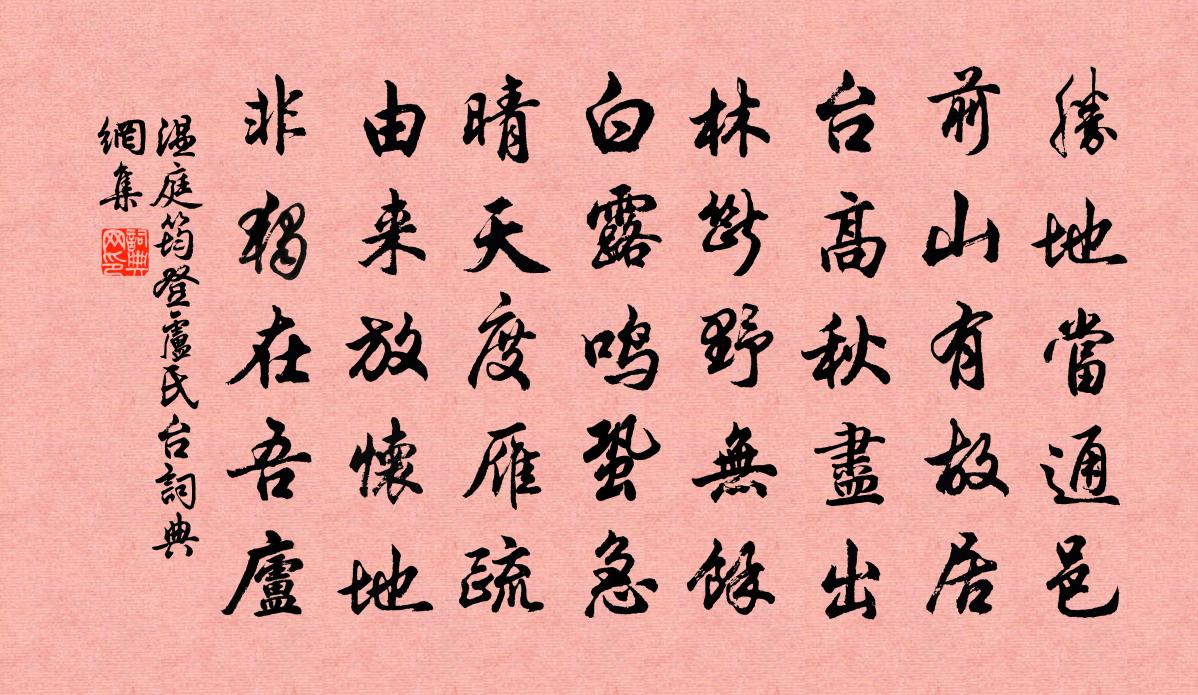 勝地當通邑
前山有故居
台高秋盡出
林斷野無餘
白露鳴蛩急
晴天度雁疏
由来放懷地
非獨在吾廬
温庭筠登盧氏台詞典
網集
詞典
网印